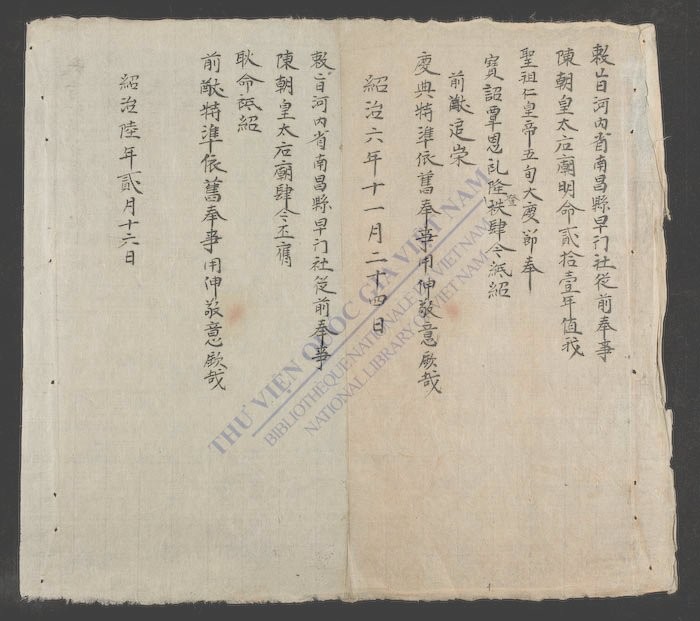 敕旨河内省南昌縣早门社從前奉事
陳朝皇太后廟明命貳拾壹年值我
聖祖仁皇帝五旬大慶節奉
寳詔覃恩禮隆登秩肆今紙紹
前猷追崇
慶典特準依舊奉事用伸敬意厥哉
紹治六年十一月二十四日
敕旨河内省南昌縣早门社從前奉事
陳朝皇太后廟肆今丕膺
耿命紙紹
前猷特準依舊奉事用伸敬意厥哉
紹治陸年貳月十六日
THƯ VIỆN QUỐC GIA VIỆT NAM
BIBLIOTHÈQUE NATIONALE DU VIETNAM
NATIONAL LIBRARY OF VIETNAM